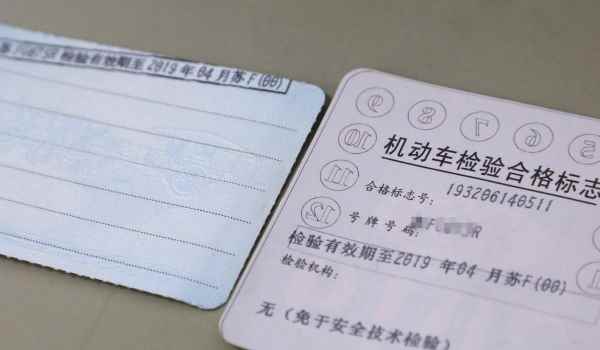 检验有效期至2019 年04 月苏F(00)
9
8
7
6
5
10
11
12
机动车检验合格标志
合格标志号: 193206140511
号 牌 号 码:
检验有效期至2019 年04 月苏F(00)
检验机构:
无(免于安全技术检验)